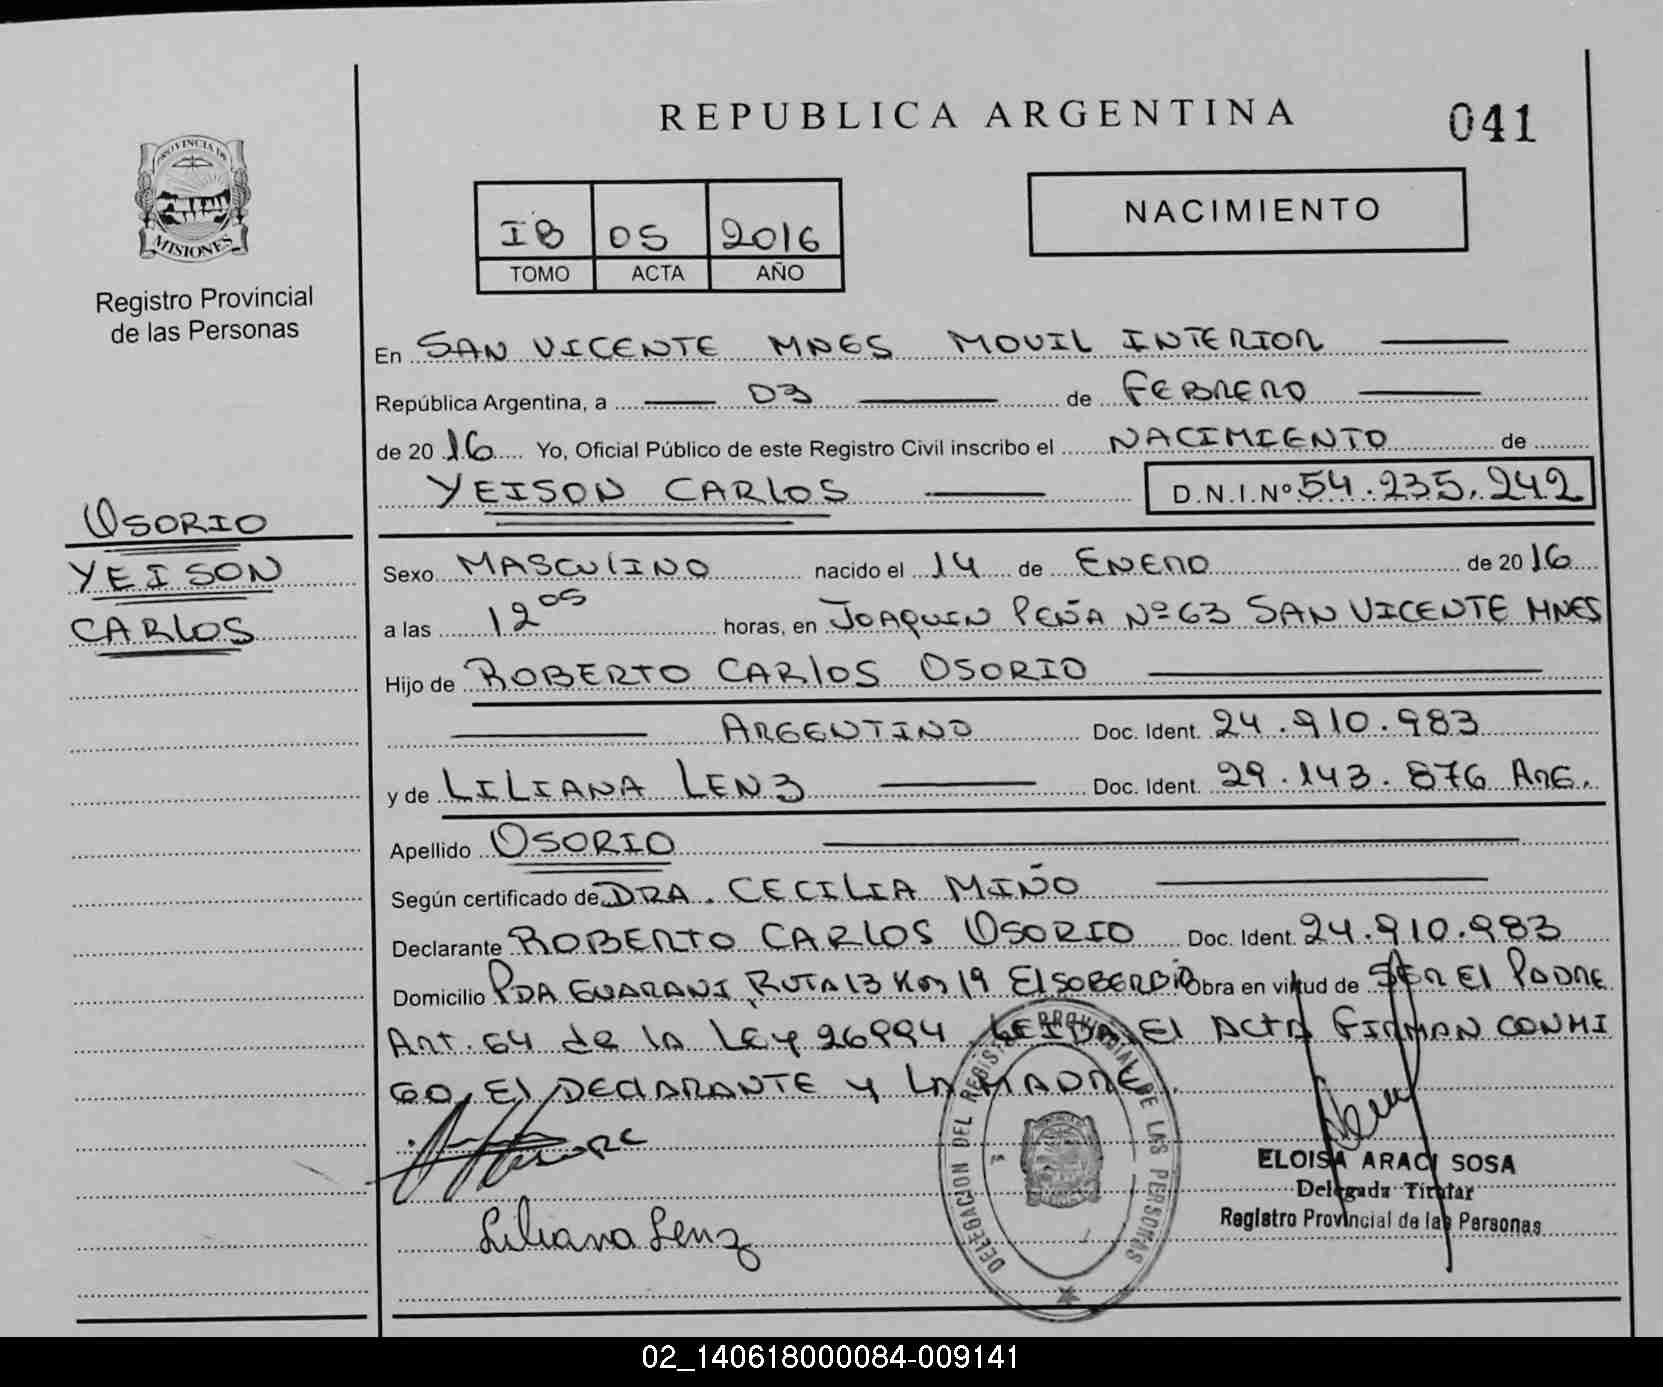 REPUBLICA ARGENTINA
041
PROVINCIA DE
MISIONES
Registro Provincial
de las Personas
IB 05 2016
TOMO ACTA AÑO
NACIMIENTO
En SAN VICENTE MNES MOVIL INTERIOR
República Argentina, a 03 de FEBRERO
de 2016 Yo, Oficial Público de este Registro Civil inscribo el NACIMIENTO de
YEISON CARLOS D.N.I.Nº 54.235.242
OSORIO
YEISON
CARLOS
Sexo MASCULINO nacido el 14 de ENERO de 2016
a las 12 05 horas, en JOAQUIN PEÑA Nº 63 SAN VICENTE MNES
Hijo de ROBERTO CARLOS OSORIO
ARGENTINO Doc. Ident. 24.910.983
y de LILIANA LENZ Doc. Ident. 29.143.876 ARG.
Apellido OSORIO
Según certificado de DRA. CECILIA MIÑO
Declarante ROBERTO CARLOS OSORIO Doc. Ident. 24.910.983
Domicilio PDA GUARANI, RUTA 13 Km 19 El SOBERBIO Obra en virtud de SER El PADRE
ART. 64 de la Ley 26994 LEIDA El ACTA FIRMAN CONMI
GO, El DECLARANTE y LA MADRE.
Liliana Lenz
DELEGACION DEL REGISTRO PROVINCIAL DE LAS PERSONAS
ELOISA ARACI SOSA
Delegada Titular
Registro Provincial de las Personas
02_140618000084-009141